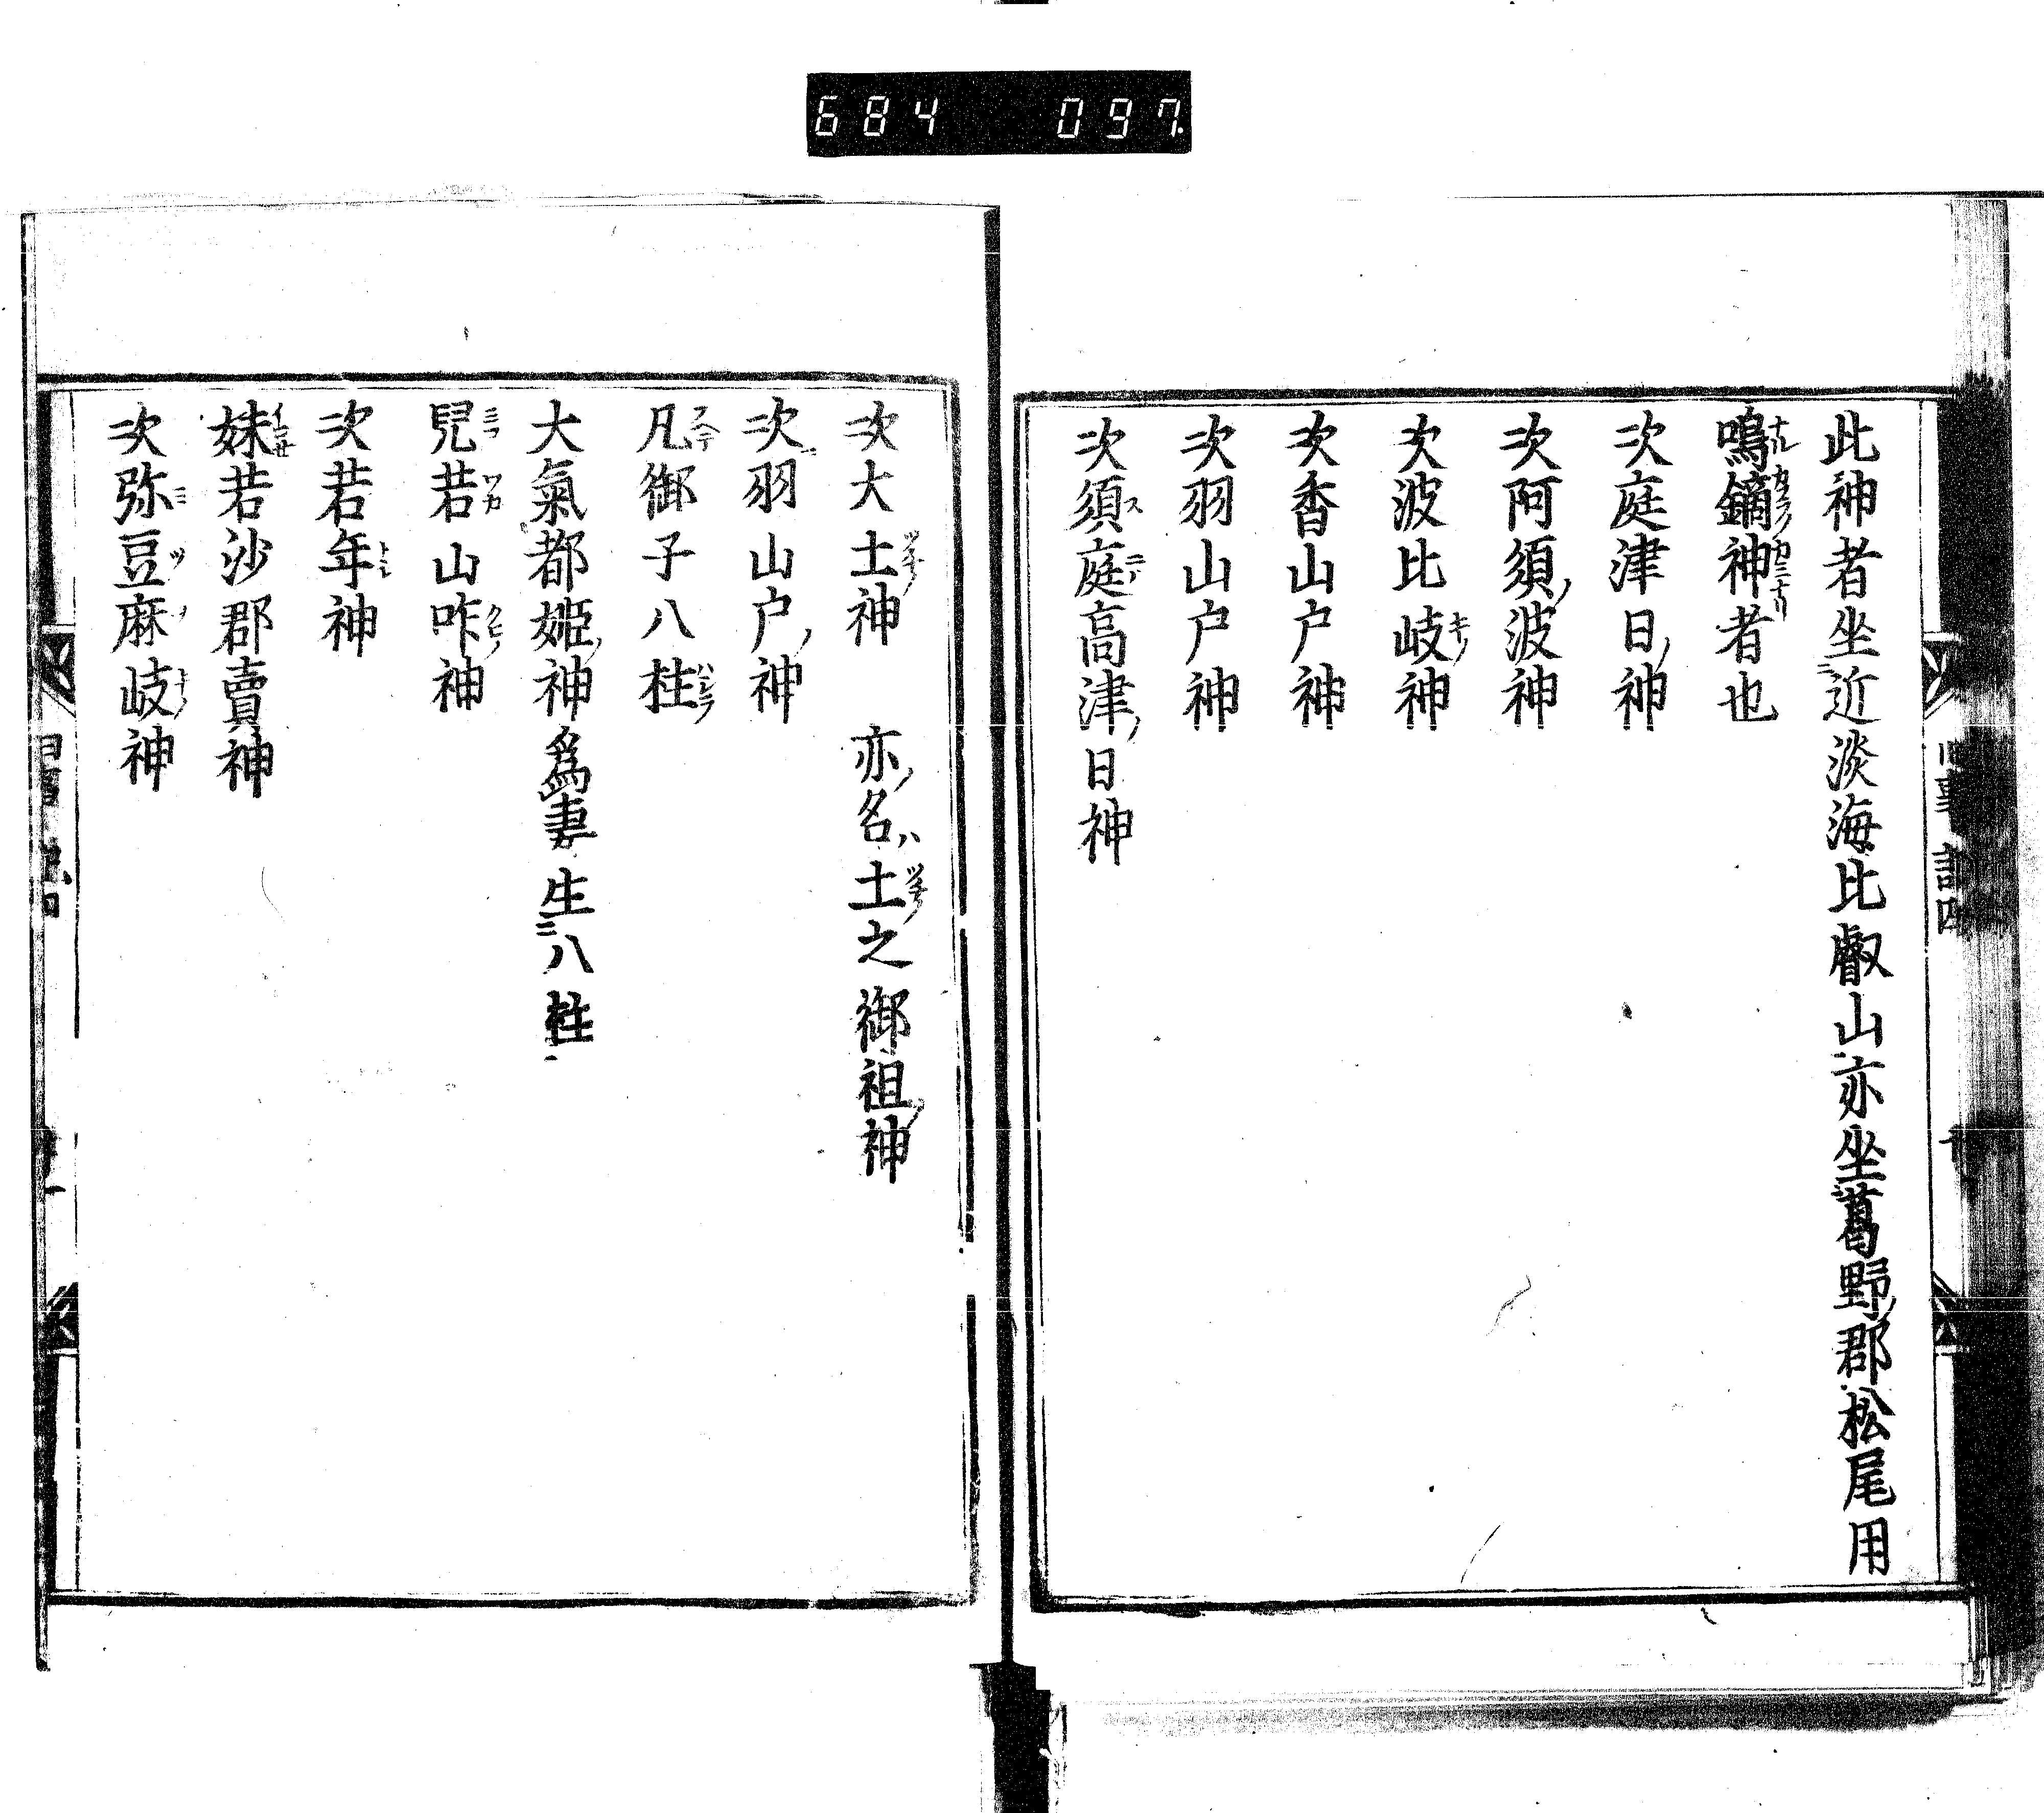 684 097
此神者坐近淡海比叡山亦坐葛野郡松尾用
鳴鏑神者也
次庭津日神
次阿須波神
次波比岐神
次香山戸神
次羽山戸神
次須庭高津日神
次大土神 亦名土之御祖神
次羽山戸神
凡御子八柱
大氣都姫神爲妻生八柱
兒若山咋神
次若年神
妹若沙郡賣神
次弥豆麻岐神